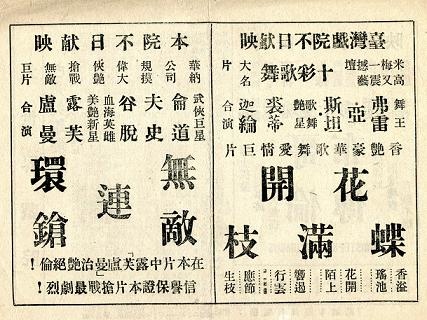 臺灣戲院不日献映
米高梅又一震撼藝壇
十彩歌舞
大名
舞王
弗雷亞斯坦
歌舞艷星
裘蒂迦綸
合演
香艷豪華歌舞愛情巨片
花開蝶滿枝
香溢瑤池
花開陌上
響遏行雲
應節生枝
本院不日献映
華納公司
規模偉大
俠艷搶戰
無敵巨片
武俠巨星
倫道夫史谷脫
血海英雄
美艷新星
露芙盧曼
合演
無敵連環鎗
在本片中「露芙盧曼」冶艷絕倫！
信譽保證本片搶戰最劇烈！